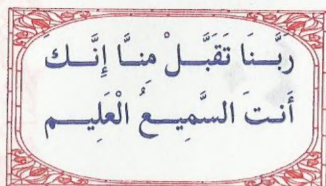 رَبَّنَا تَقَبَّلْ مِنَّا إِنَّكَ
أَنتَ السَّمِيعُ الْعَلِيم